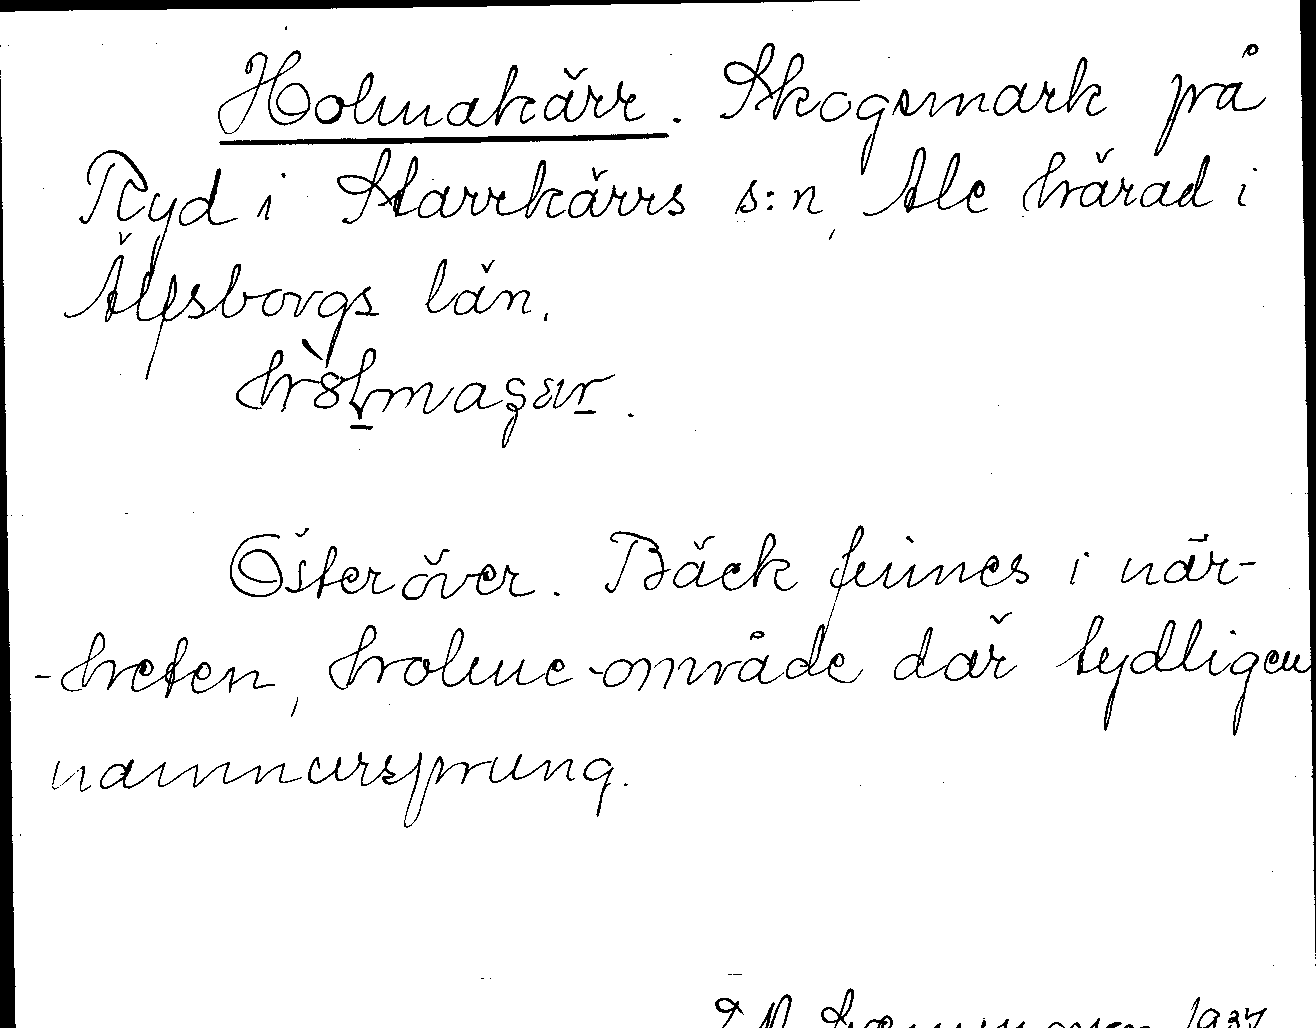 Holmakärr. Skogsmark på
Ryd i Starrkärrs s:n, Ale härad i
Älfsborgs län.
Österöver. Bäck finnes i när-
-heten, holme-område där tydligen
namnursprung.
1937